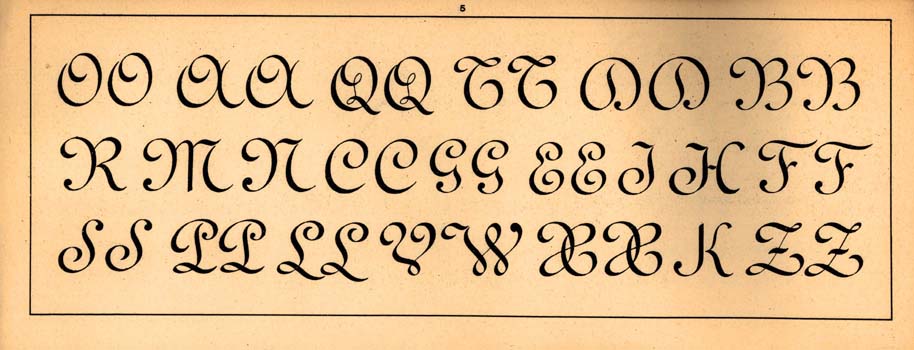 5
OO AA QQ TT DD BB
R M N CC GG EE I H FF
SS PP LL V W XX K ZZ